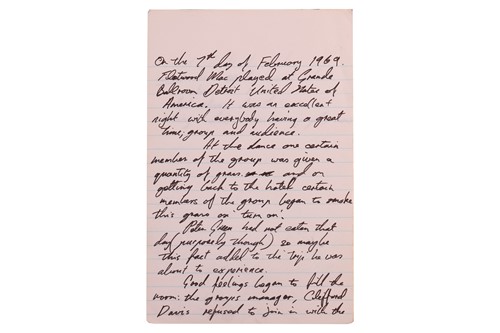 On the 7th day of February 1969.
Fleetwood Mac played at Grande
Ballroom Detroit United States of
America. It was an excellent
night with everybody having a great
time, group and audience.
At the dance one certain
member of the group was given a
quantity of grass and on
getting back to the hotel certain
members of the group began to smoke
this grass or turn on.
Peter Green had not eaten that
day (purposely though) so maybe
this fact added to the trip he was
about to experience.
Good feelings began to fill the
room: the groups manager, Clifford
Davis refused to join in with the